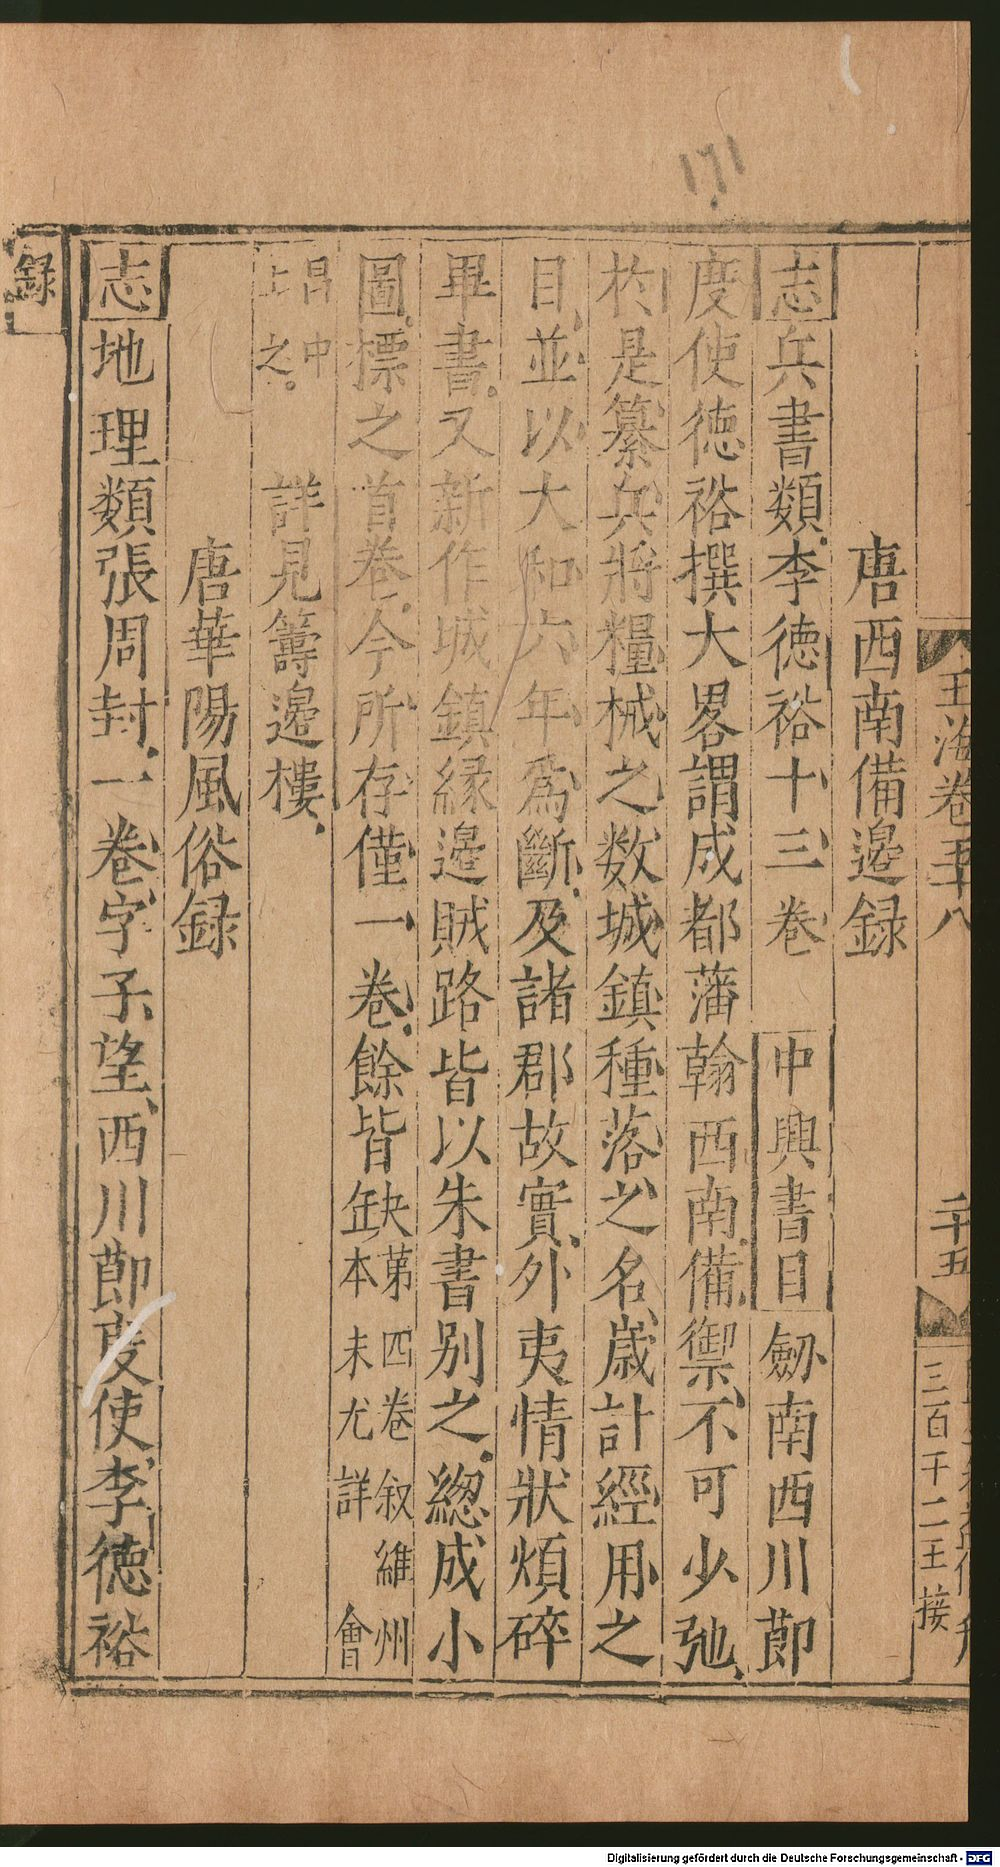 171
玉海卷五十八
二十五
三百干二王接
唐西南備邊録
志兵書類李徳裕十三卷 中興書目劒南西川莭
度使徳裕撰大畧謂成都藩翰西南備禦不可少弛
於是纂兵將糧械之数城鎮種落之名歳計經用之
目並以大和六年爲斷及諸郡故實外夷情狀煩碎
畢書又新作城鎮縁邊賊路皆以朱書别之緫成小
圖標之首卷今所存僅一卷餘皆缺第四卷叙維州
本末尤詳會
昌中
上之 詳見籌邊樓
唐華陽風俗録
志地理類張周封一卷字子望西川莭度使李徳裕
録
Digitalisierung gefördert durch die Deutsche Forschungsgemeinschaft - DFG